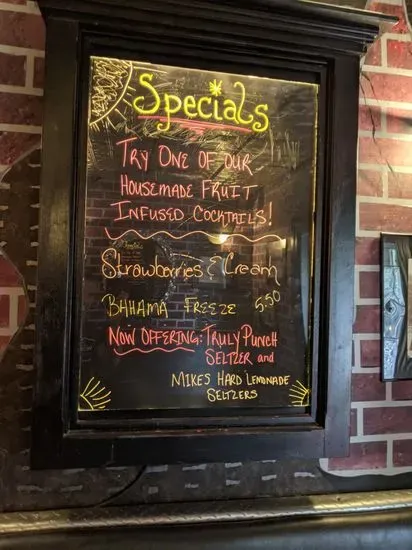 Specials
Try One of our
Housemade Fruit
Infused Cocktails!
Strawberries & Cream
Bahama Freeze 5.50
Now Offering: Truly Punch
Seltzer and
Mikes Hard Lemonade
Seltzers